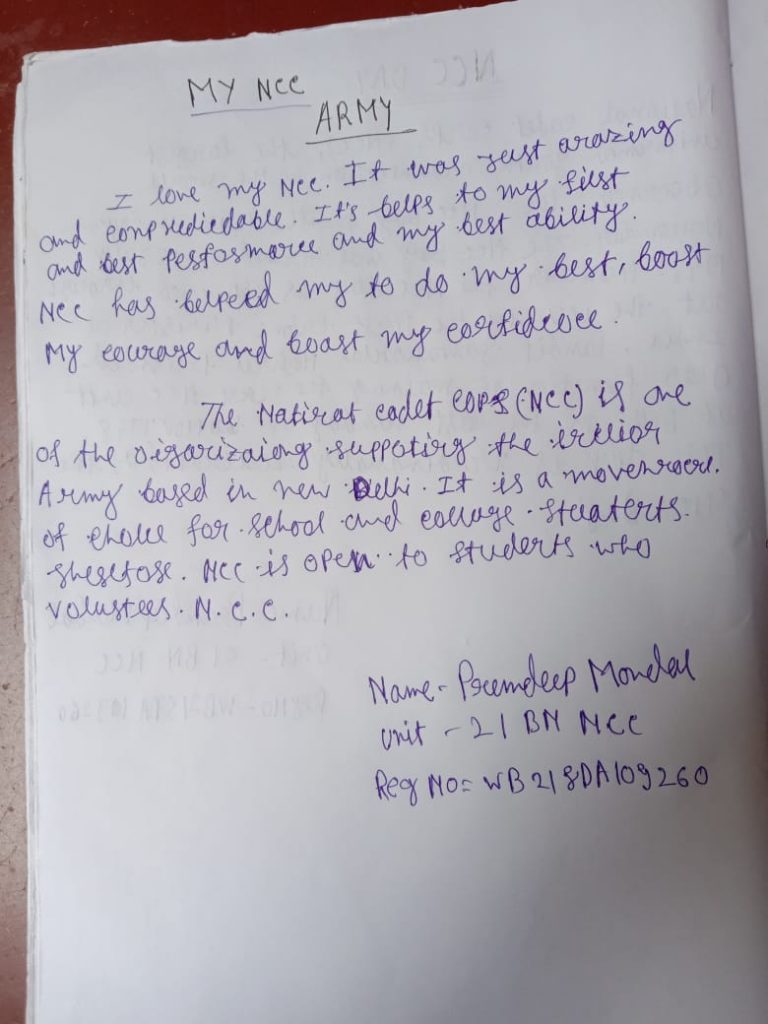 MY NCC
ARMY
I love my NCC. It was just arazing
and conprediedable. It's belps to my first
and best performance and my best ability.
NCC has belpeed my to do my best, boost
My courage and boast my corfideoce.
The Natirat cadet COPS (NCC) is one
of the oigarizaiong suppoting the irulior
Army based in new Delhi. It is a movenroeu.
of choue for school and collage stuaterts.
sheSefose. NCC is open to studerts who
volustees. N.C.C.
Name- Premdeep Mondal
Unit - 21 BN NCC
Reg NO= WB21SDA109260